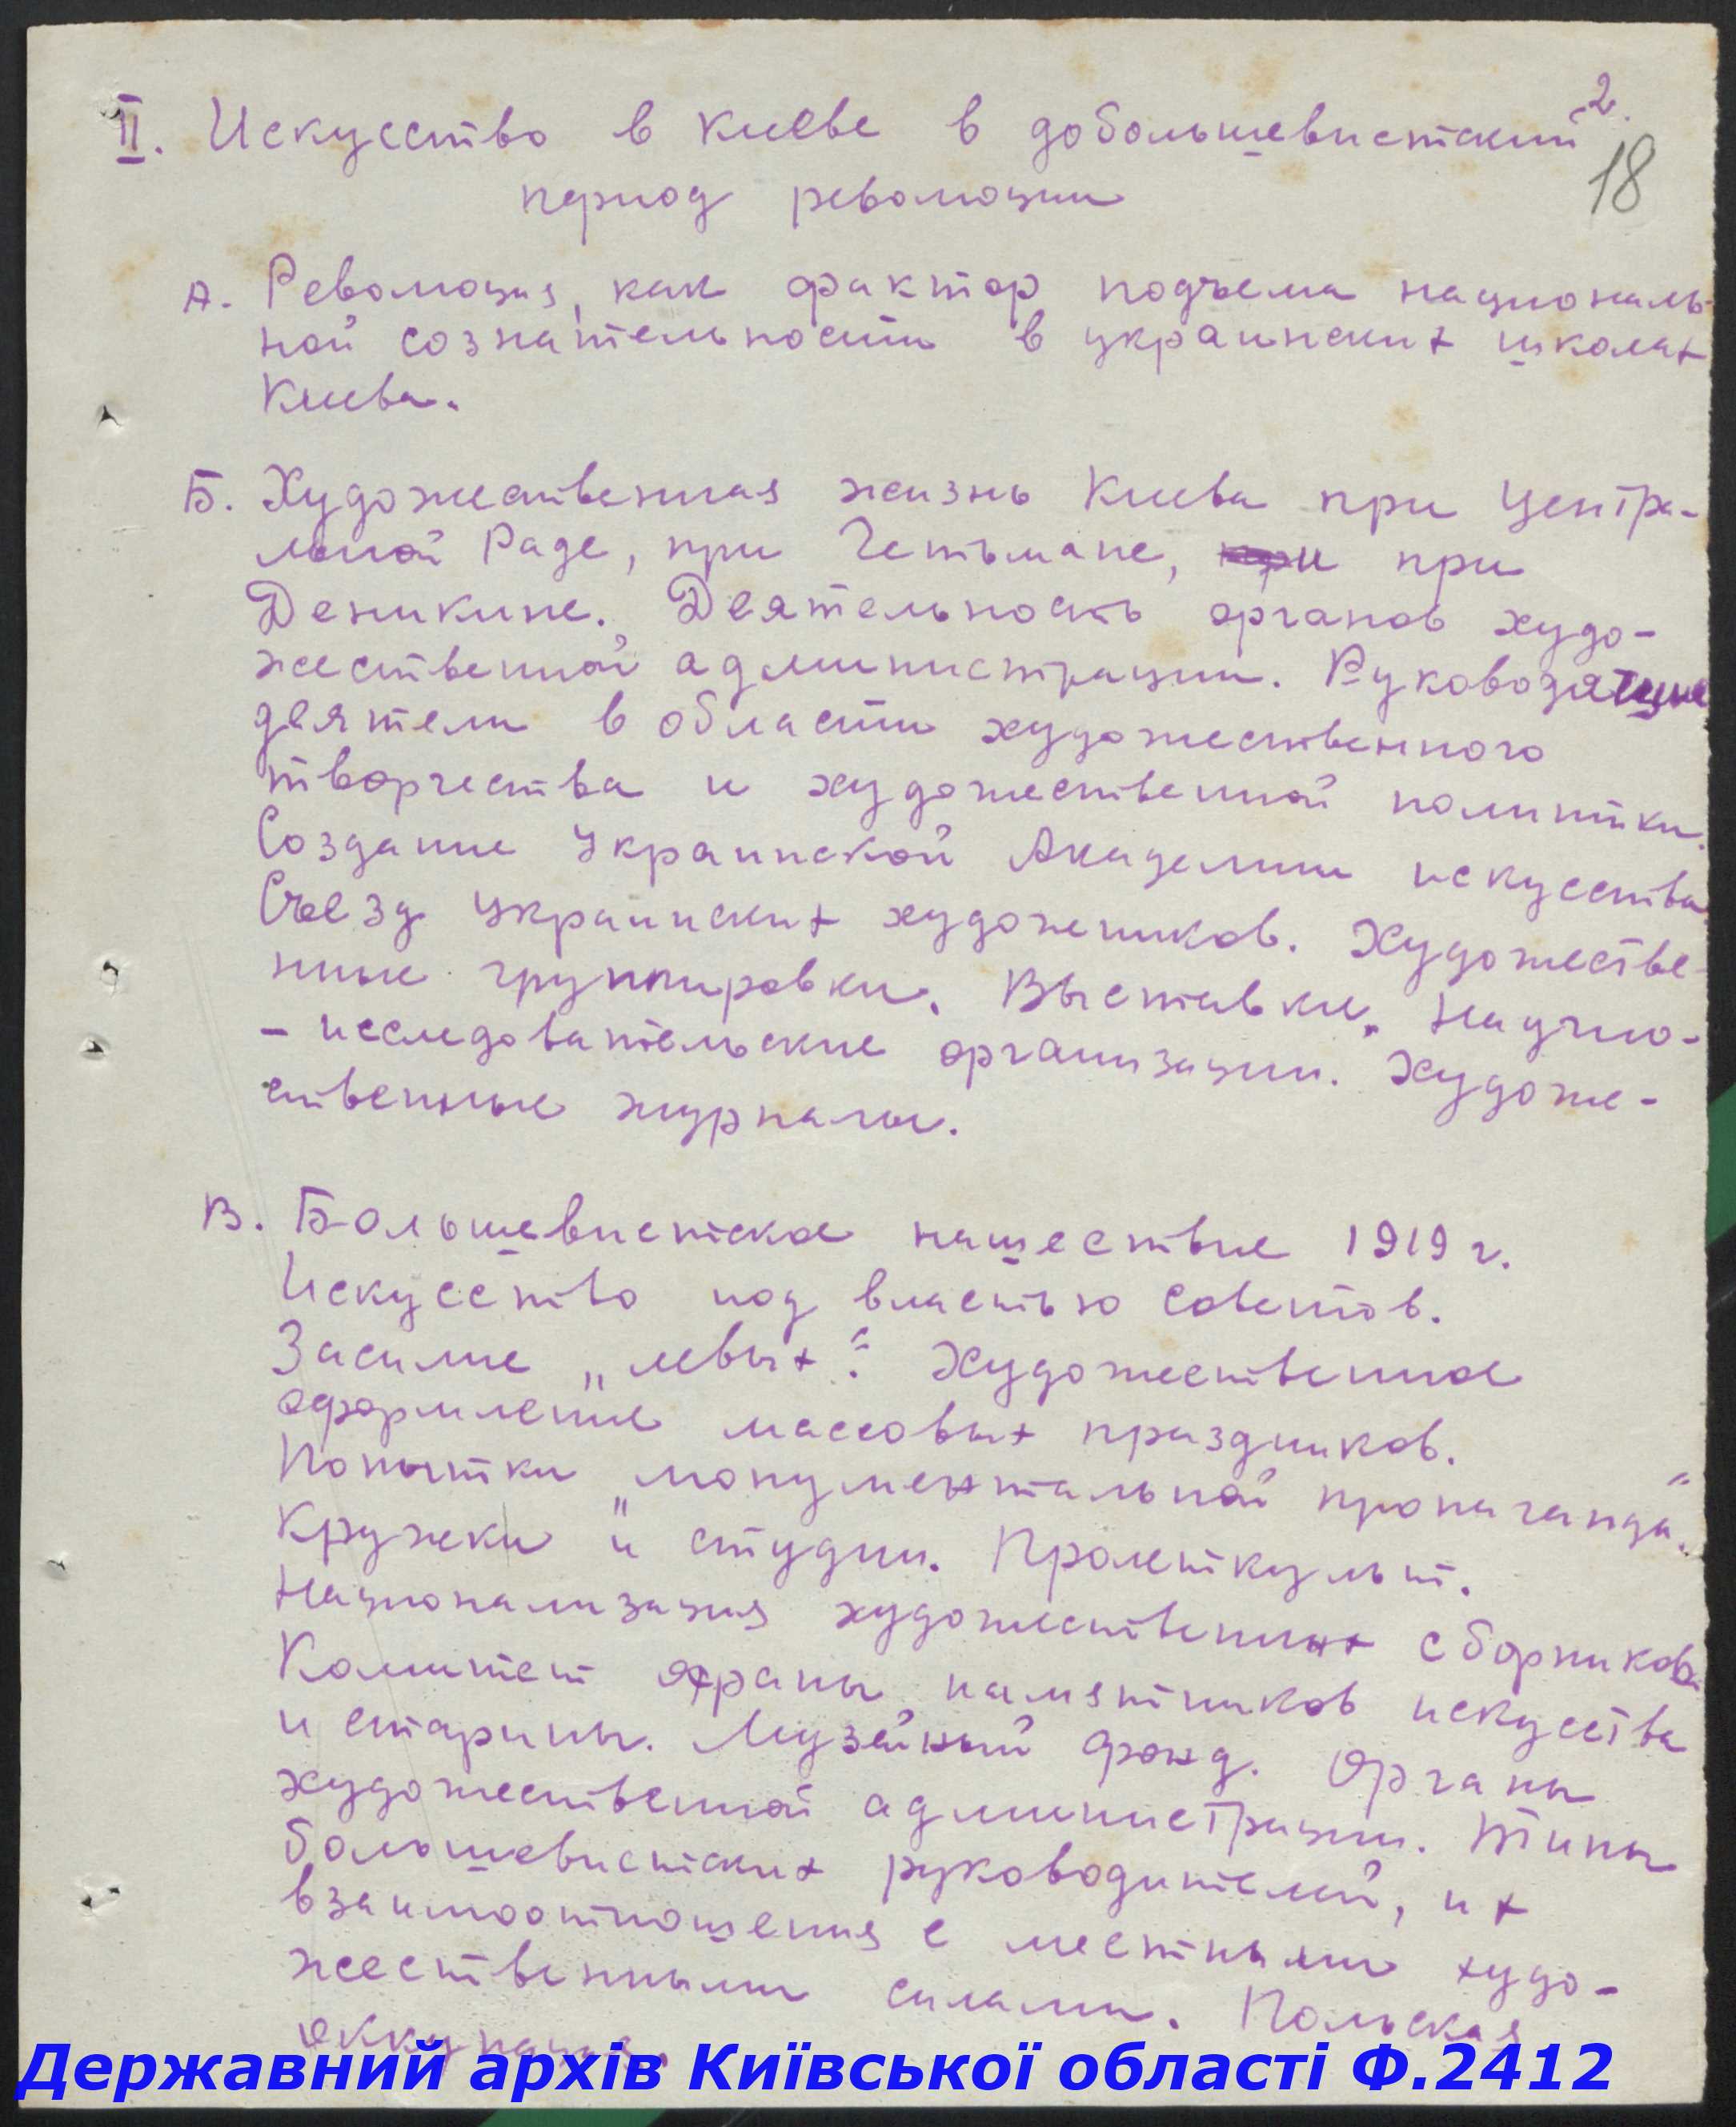 2.
II. Искусство в Киеве в добольшевистский
18
период революции
А. Революция, как фактор подъема националь-
ной сознательности в украинских школах
Киева.
Б. Художественная жизнь Киева при Центра-
льной Раде, при Гетьмане, при при
Деникине. Деятельность органов худо-
жественной администрации. Руководящие
деятели в области художественного
творчества и художественной политики.
Создание Украинской Академии искусства.
Съезд украинских художников. Художестве-
нные группировки. Выставки. Научно-
- исследовательские организации. Художе-
ственные журналы.
В. Большевистское нашествие 1919 г.
Искусство под властью советов.
Засилие „левых“. Художественное
оформление массовых праздников.
Попытки „монументальной пропаганды“.
Кружки и студии. Пролеткульт.
Национализация художественных сборников.
Комитет охраны памятников искусства
и старины. Музейный фонд. Органы
художественной администрации. Типы
большевистских руководителей, их
взаимоотношения с местными худо-
жественными силами. Польская
оккупация.
Державний архів Київської області Ф.2412